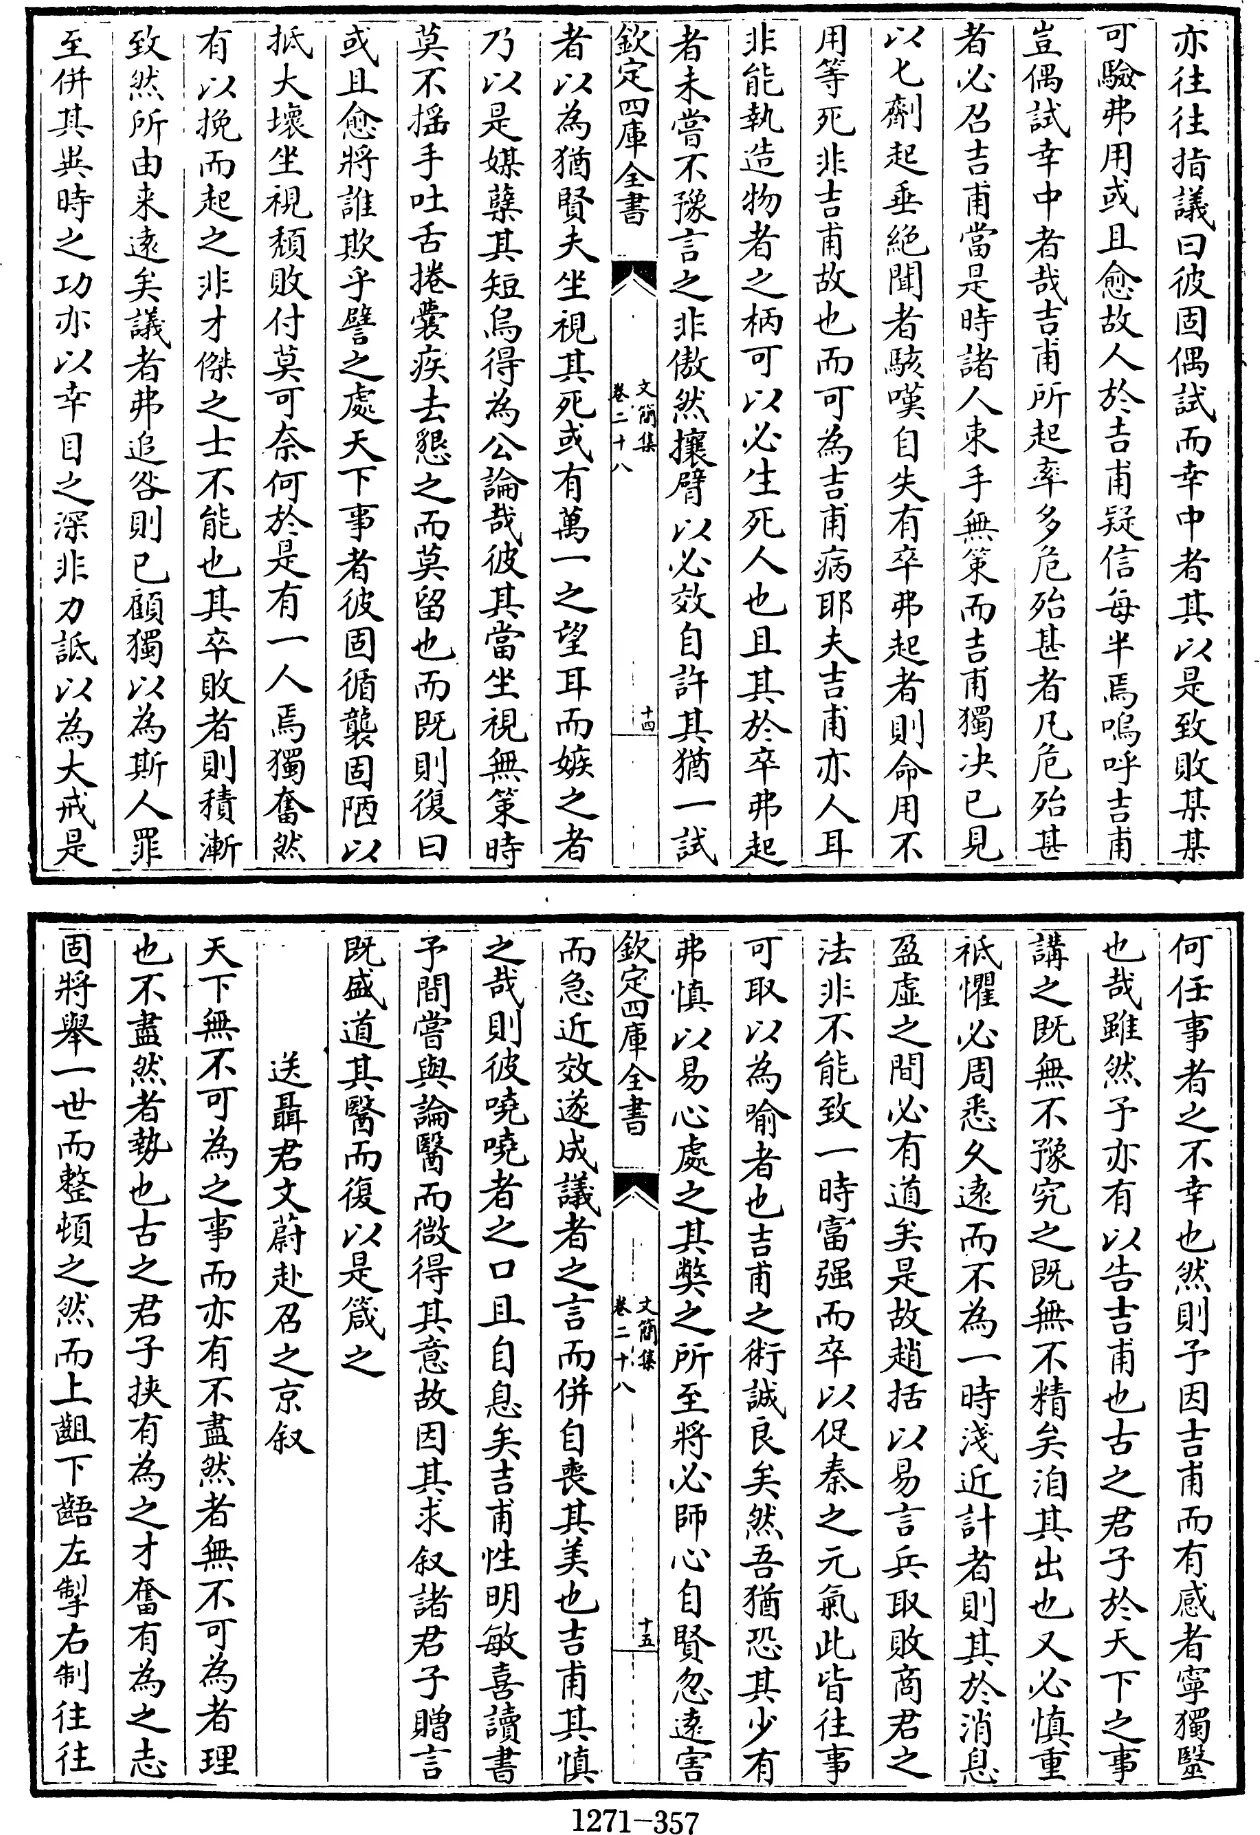 亦往往指議曰彼固偶試而幸中者其以是致敗某某
可驗弗用或且愈故人於吉甫疑信每半焉嗚呼吉甫
豈偶試幸中者哉吉甫所起率多危殆甚者凡危殆甚
者必召吉甫當是時諸人束手無策而吉甫獨决已見
以匕劑起垂絶聞者駭嘆自失有卒弗起者則命用不
用等死非吉甫故也而可為吉甫病耶夫吉甫亦人耳
非能執造物者之柄可以必生死人也且其於卒弗起
者未嘗不豫言之非傲然攘臂以必效自許其猶一試
欽定四庫全書
文簡集
卷二十八
十四
者以為猶賢夫坐視其死或有萬一之望耳而嫉之者
乃以是媒蘖其短烏得為公論哉彼其當坐視無策時
莫不揺手吐舌捲囊疾去懇之而莫留也而既則復曰
或且愈將誰欺乎譬之處天下事者彼固循襲固陋以
抵大壞坐視頽敗付莫可奈何於是有一人焉獨奮然
有以挽而起之非才傑之士不能也其卒敗者則積漸
致然所由来遠矣議者弗追咎則已顧獨以為斯人罪
至併其異時之功亦以幸目之深非力詆以為大戒是
何任事者之不幸也然則予因吉甫而有感者寧獨毉
也哉雖然予亦有以告吉甫也古之君子於天下之事
講之既無不豫究之既無不精矣洎其出也又必慎重
祗懼必周悉久遠而不為一時淺近計者則其於消息
盈虚之間必有道矣是故趙括以易言兵取敗商君之
法非不能致一時富强而卒以促秦之元氣此皆往事
可取以為喻者也吉甫之術誠良矣然吾猶恐其少有
弗慎以易心處之其弊之所至將必師心自賢忽遠害
欽定四庫全書
文簡集
卷二十八
十五
而急近效遂成議者之言而併自喪其美也吉甫其慎
之哉則彼嘵嘵者之口且自息矣吉甫性明敏喜讀書
予間嘗與論醫而微得其意故因其求叙諸君子贈言
既盛道其醫而復以是箴之
送聶君文蔚赴召之京叙
天下無不可為之事而亦有不盡然者無不可為者理
也不盡然者勢也古之君子挾有為之才奮有為之志
固將舉一世而整頓之然而上齟下齬左掣右制往往
1271-357